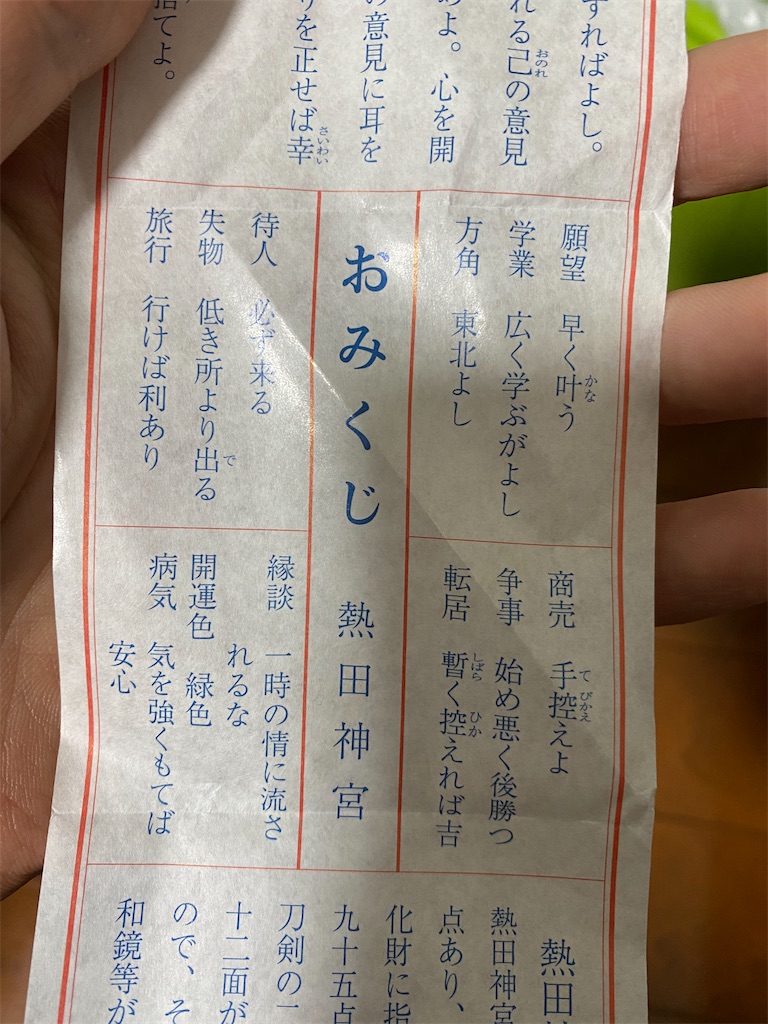 すればよし。
れる己の意見
よ。心を開
の意見に耳を
りを正せば幸
捨てよ。
おのれ
さいわい
願望 早く叶う
かな
学業 広く学ぶがよし
方角 東北よし
商売 手控えよ
て びかえ
争事 始め悪く後勝つ
転居 暫く控えれば吉
しばら ひか
おみくじ 熱田神宮
待人 必ず来る
失物 低き所より出る
で
旅行 行けば利あり
縁談 一時の情に流さ
れるな
開運色 緑色
病気 気を強くもてば
安心
熱田
熱田神宮
点あり、
化財に指
九十五点
刀剣の
十二面が
ので、そ
和鏡等が